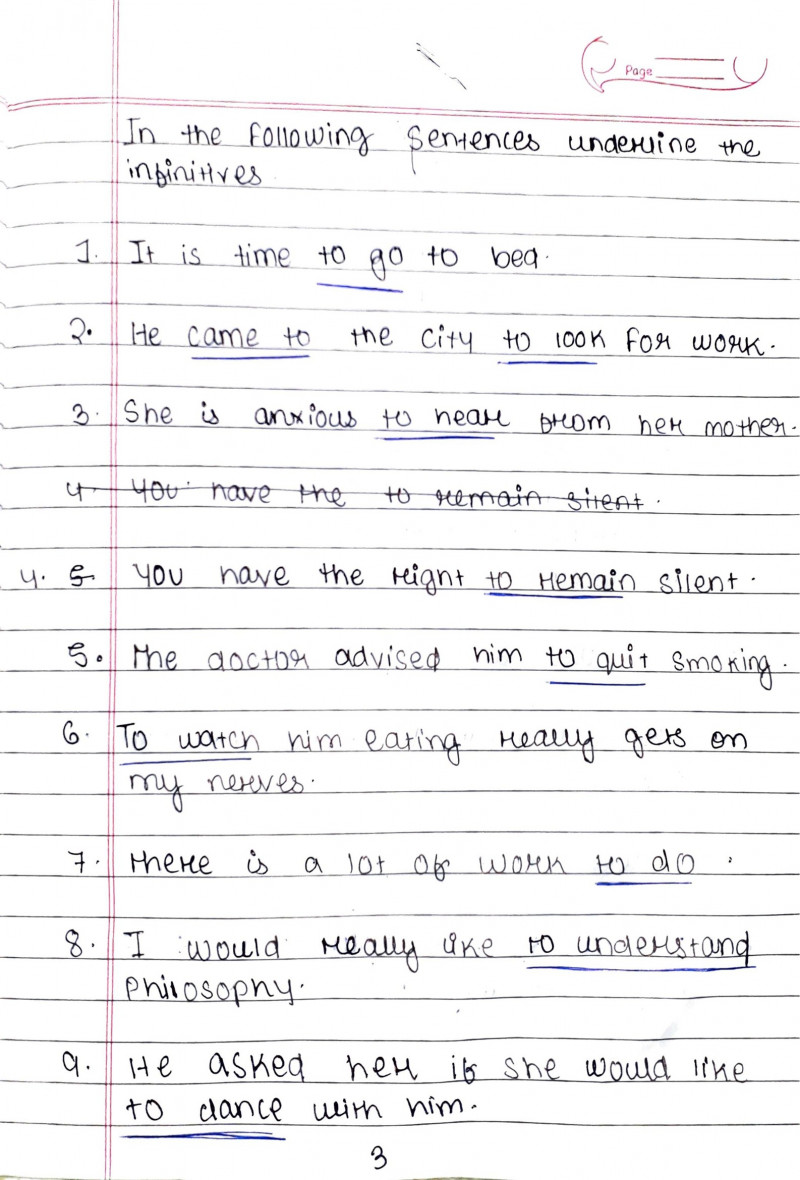 Page
In the following Sentences underline the
infinitives
1. It is time to go to bed.
2. He came to the city to look for work.
3. She is anxious to hear from her mother.
4. You have the to remain silent.
4. 5 You have the right to remain silent.
5. The doctor advised him to quit smoking.
6. To watch him eating really gets on
my nerves.
7. There is a lot of work to do.
8. I would really like to understand
philosophy.
9. He asked her if she would like
to dance with him.
3